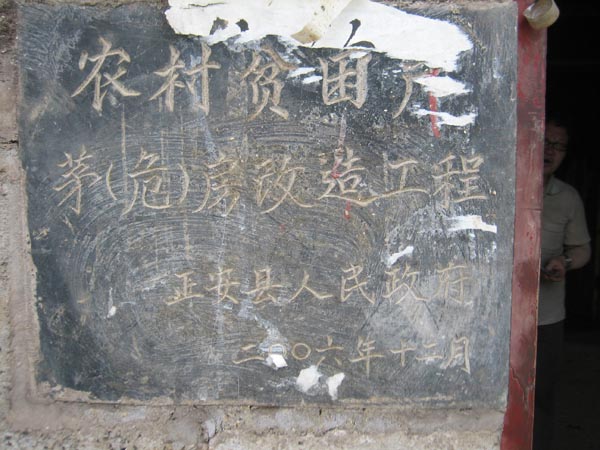 农村贫困户
茅(危)房改造工程
正安县人民政府
二〇〇六年十二月